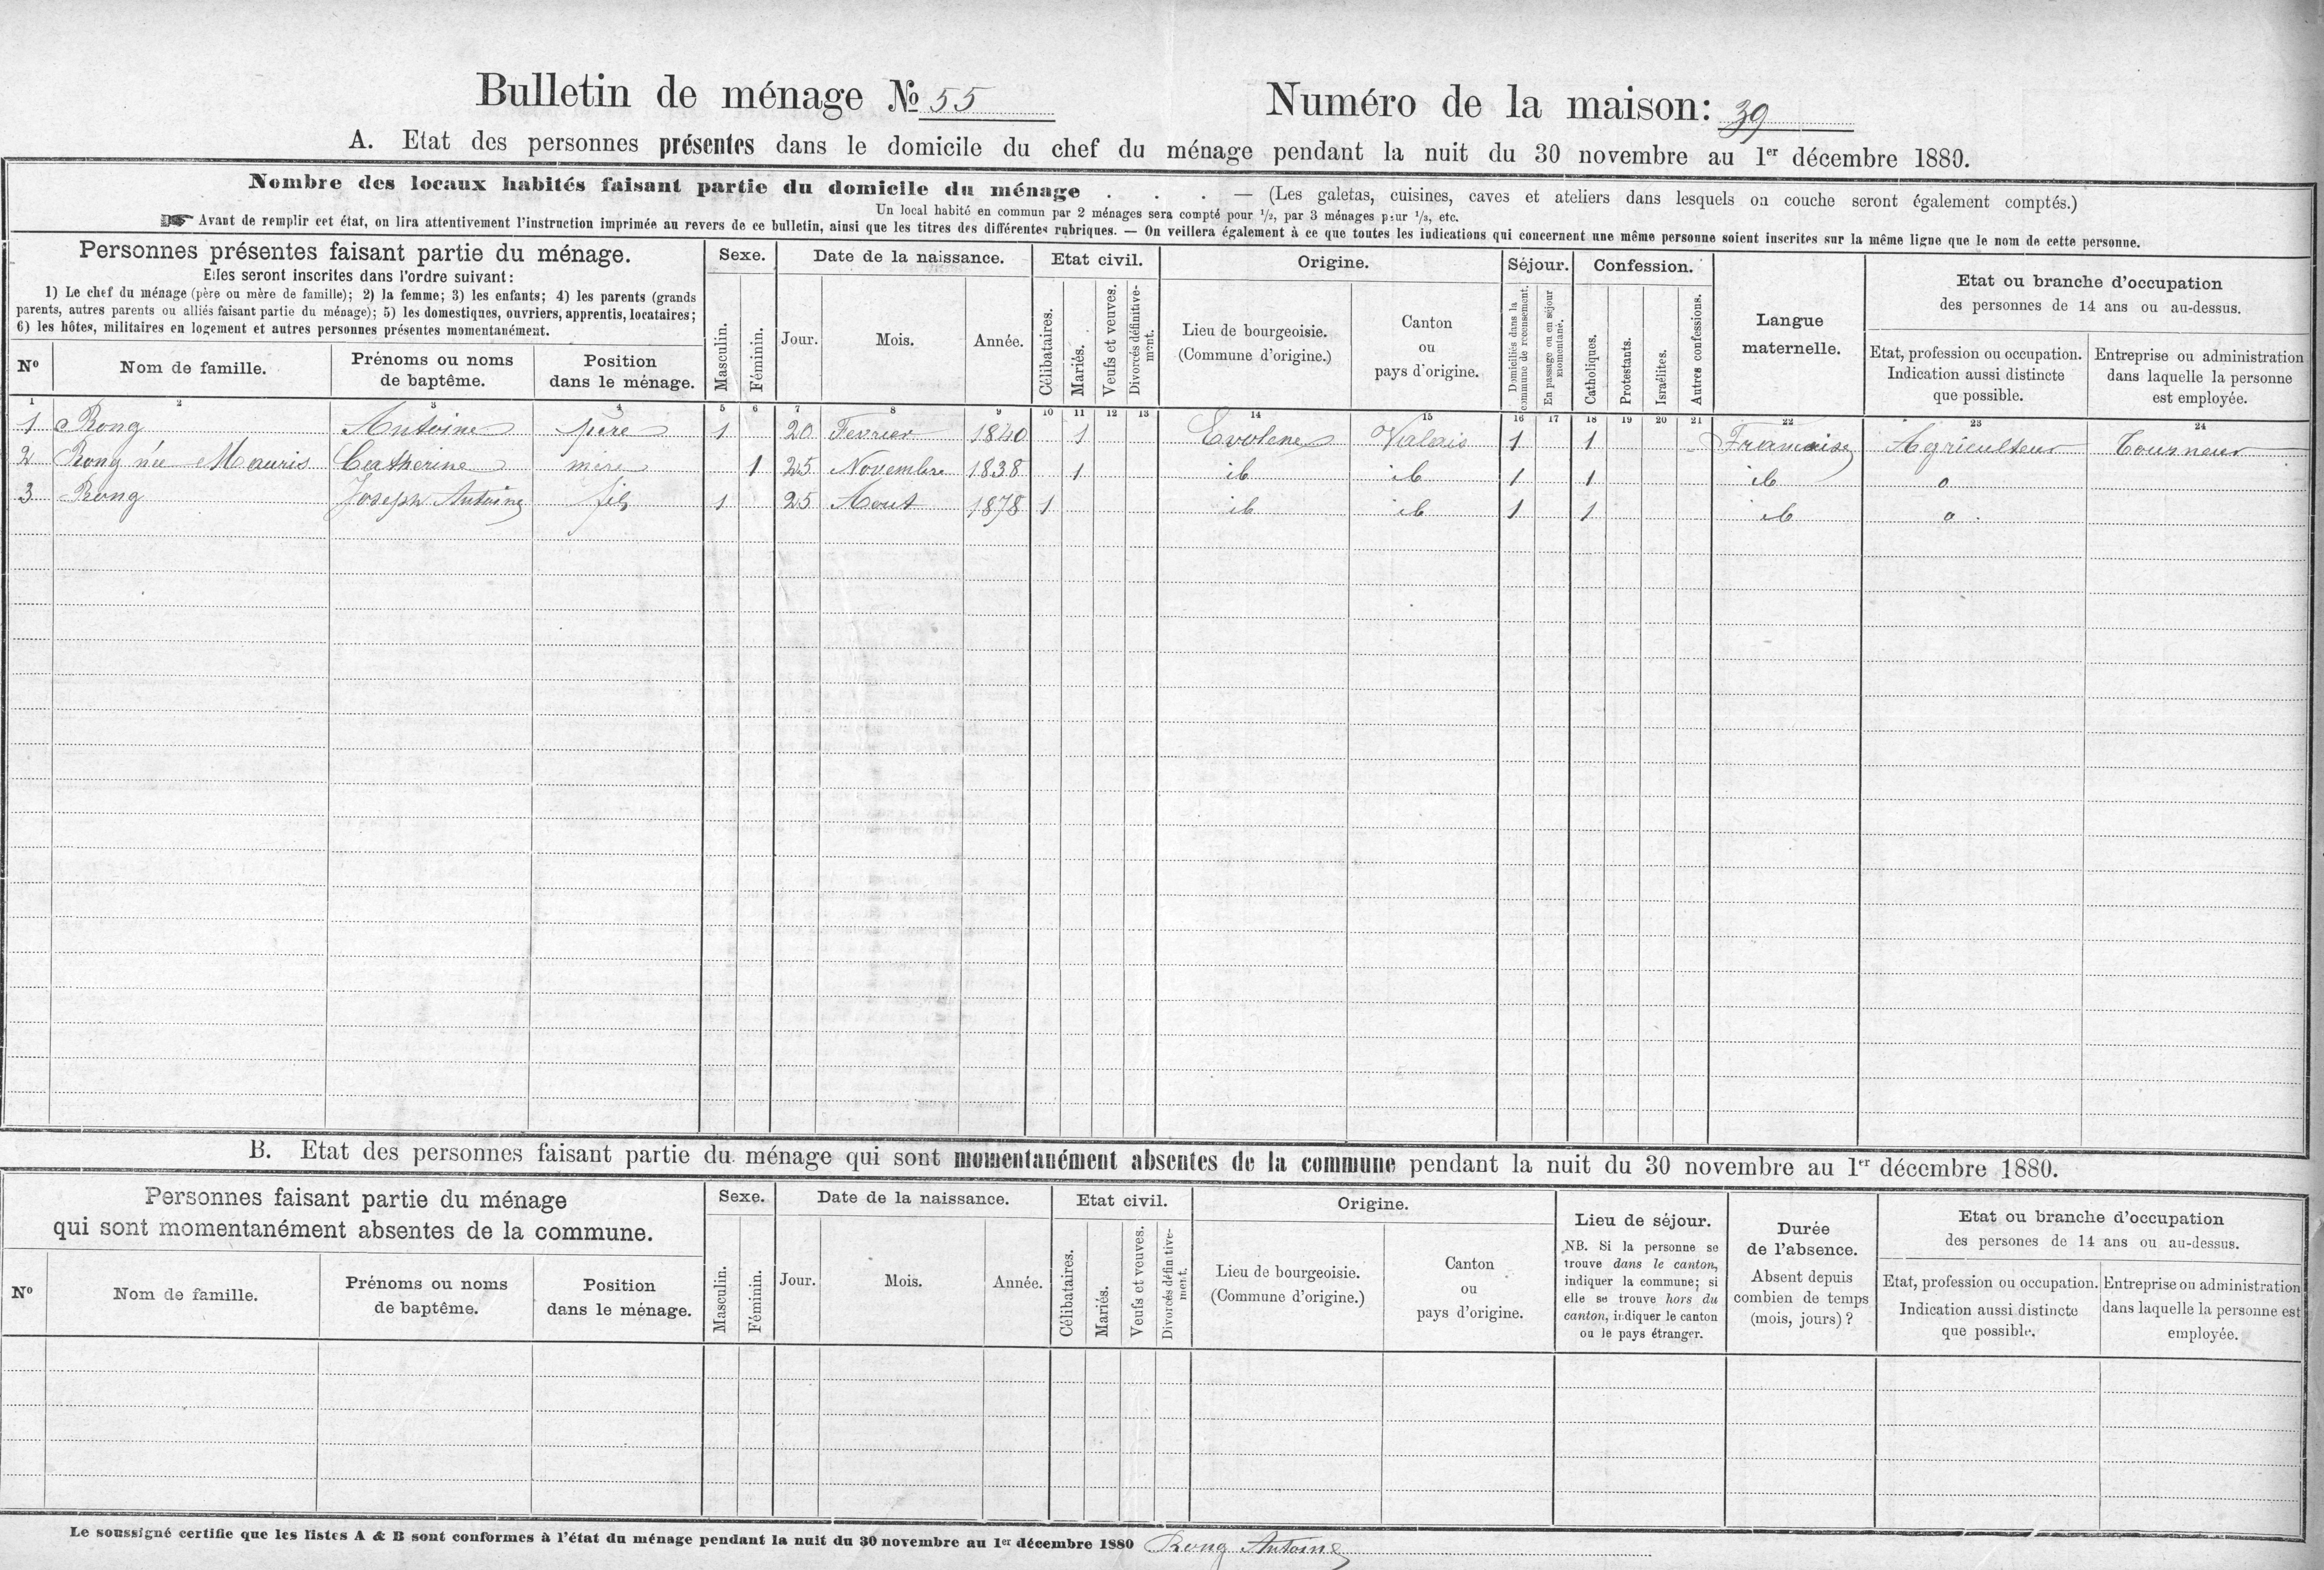 Bulletin de ménage № 55
Numéro de la maison: 39
A. Etat des personnes présentes dans le domicile du chef du ménage pendant la nuit du 30 novembre au 1er décembre 1880.
Nombre des locaux habités faisant partie du domicile du ménage . . . — (Les galetas, cuisines, caves et ateliers dans lesquels on couche seront également comptés.)
Un local habité en commun par 2 ménages sera compté pour 1/2, par 3 ménages pour 1/3, etc.
☞ Avant de remplir cet état, on lira attentivement l'instruction imprimée au revers de ce bulletin, ainsi que les titres des différentes rubriques. — On veillera également à ce que toutes les indications qui concernent une même personne soient inscrites sur la même ligne que le nom de cette personne.
Personnes présentes faisant partie du ménage.
Elles seront inscrites dans l'ordre suivant:
1) Le chef du ménage (père ou mère de famille); 2) la femme; 3) les enfants; 4) les parents (grands
parents, autres parents ou alliés faisant partie du ménage); 5) les domestiques, ouvriers, apprentis, locataires;
6) les hôtes, militaires en logement et autres personnes présentes momentanément.
Nº
Nom de famille.
Prénoms ou noms
de baptême.
Position
dans le ménage.
Sexe.
Masculin.
Féminin.
Date de la naissance.
Jour.
Mois.
Année.
Etat civil.
Célibataires.
Mariés.
Veufs et veuves.
Divorcés définitive-
ment.
Origine.
Lieu de bourgeoisie.
(Commune d'origine.)
Canton
ou
pays d'origine.
Séjour.
Domiciliés dans la
commune de recensement.
En passage ou en séjour
momentané.
Confession.
Catholiques.
Protestants.
Israélites.
Autres confessions.
Langue
maternelle.
Etat ou branche d'occupation
des personnes de 14 ans ou au-dessus.
Etat, profession ou occupation.
Indication aussi distincte
que possible.
Entreprise ou administration
dans laquelle la personne
est employée.
1 2 3 4 5 6 7 8 9 10 11 12 13 14 15 16 17 18 19 20 21 22 23 24
1 Rong Antoine père 1 20 Fevrier 1840 1 Evolene Valais 1 1 Francaise Agriculteur Tourneur
2 Rong née Mauris Catherine mère 1 25 Novembre 1838 1 ib ib 1 1 ib o
3 Rong Joseph Antoine fils 1 25 Aout 1878 1 ib ib 1 1 ib o
B. Etat des personnes faisant partie du ménage qui sont momentanément absentes de la commune pendant la nuit du 30 novembre au 1er décembre 1880.
Personnes faisant partie du ménage
qui sont momentanément absentes de la commune.
Nº
Nom de famille.
Prénoms ou noms
de baptême.
Position
dans le ménage.
Sexe.
Masculin.
Féminin.
Date de la naissance.
Jour.
Mois.
Année.
Etat civil.
Célibataires.
Mariés.
Veufs et veuves.
Divorcés définitive-
ment.
Origine.
Lieu de bourgeoisie.
(Commune d'origine.)
Canton
ou
pays d'origine.
Lieu de séjour.
NB. Si la personne se
trouve dans le canton,
indiquer la commune; si
elle se trouve hors du
canton, indiquer le canton
ou le pays étranger.
Durée
de l'absence.
Absent depuis
combien de temps
(mois, jours)?
Etat ou branche d'occupation
des persones de 14 ans ou au-dessus.
Etat, profession ou occupation.
Indication aussi distincte
que possible.
Entreprise ou administration
dans laquelle la personne est
employée.
Le soussigné certifie que les listes A & B sont conformes à l'état du ménage pendant la nuit du 30 novembre au 1er décembre 1880 Rong Antoine